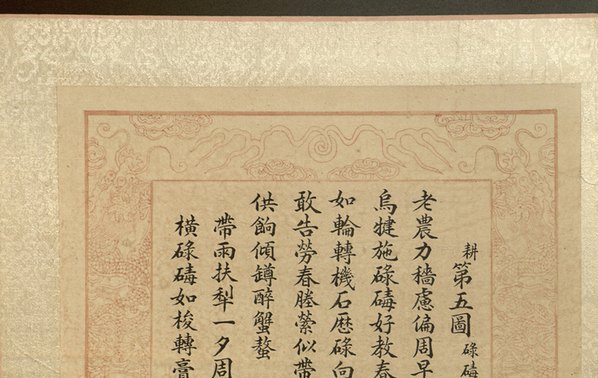 耕第五圖碌碡
老農力穡慮偏周早
烏犍施碌碡好教春
如輪轉機石歷碌向
敢告勞春塍縈似帶
供餉傾罇醉蟹螯
帶雨扶犁一夕周
橫碌碡如梭轉膏